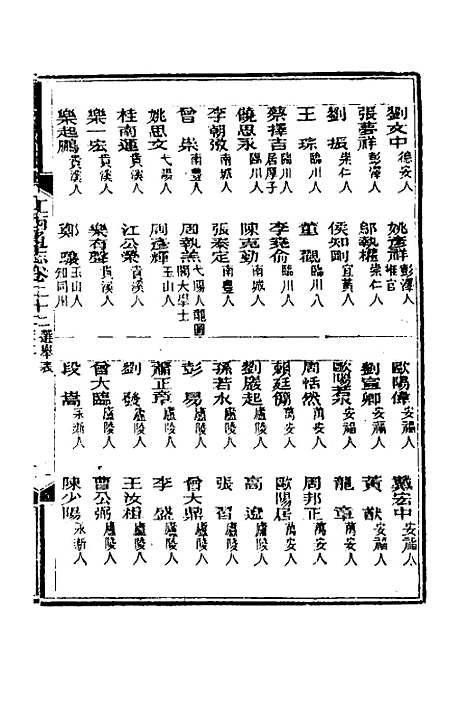 劉文中德安人 姚彥祥彭澤人
張夢祥彭澤人 鄔執權崇仁人
劉振崇仁人 侯知剛宜黃人
王琮臨川人 董觀臨川人
蔡擇吉臨川人 李堯俞臨川人
饒思永臨川人 陳克勤南城人
李朝徵南城人 張泰定南豐人
曾棠南豐人 周執羔弋陽人龍圖閣大學士
姚思文弋陽人 周彥輝玉山人
桂南運貴溪人 江公榮貴溪人
樂一宏貴溪人 樂有聲貴溪人
樂起鵬貴溪人 鄭驤玉山人知同州
歐陽偉安福人 戴宏中安福人
劉宣卿安福人 黃猷安福人
歐陽老泉安福人 龍章安福人
周恬然萬安人 周邦正萬安人
賴廷僴萬安人 歐陽居萬安人
劉嚴起廬陵人 高遼廬陵人
孫若水廬陵人 張習廬陵人
彭易廬陵人 曾大鼎廬陵人
蕭正章廬陵人 李盛廬陵人
劉發廬陵人 王汝楫廬陵人
曾大臨廬陵人 曹公弼廬陵人
段嵩永新人 陳少陽永新人
選舉表